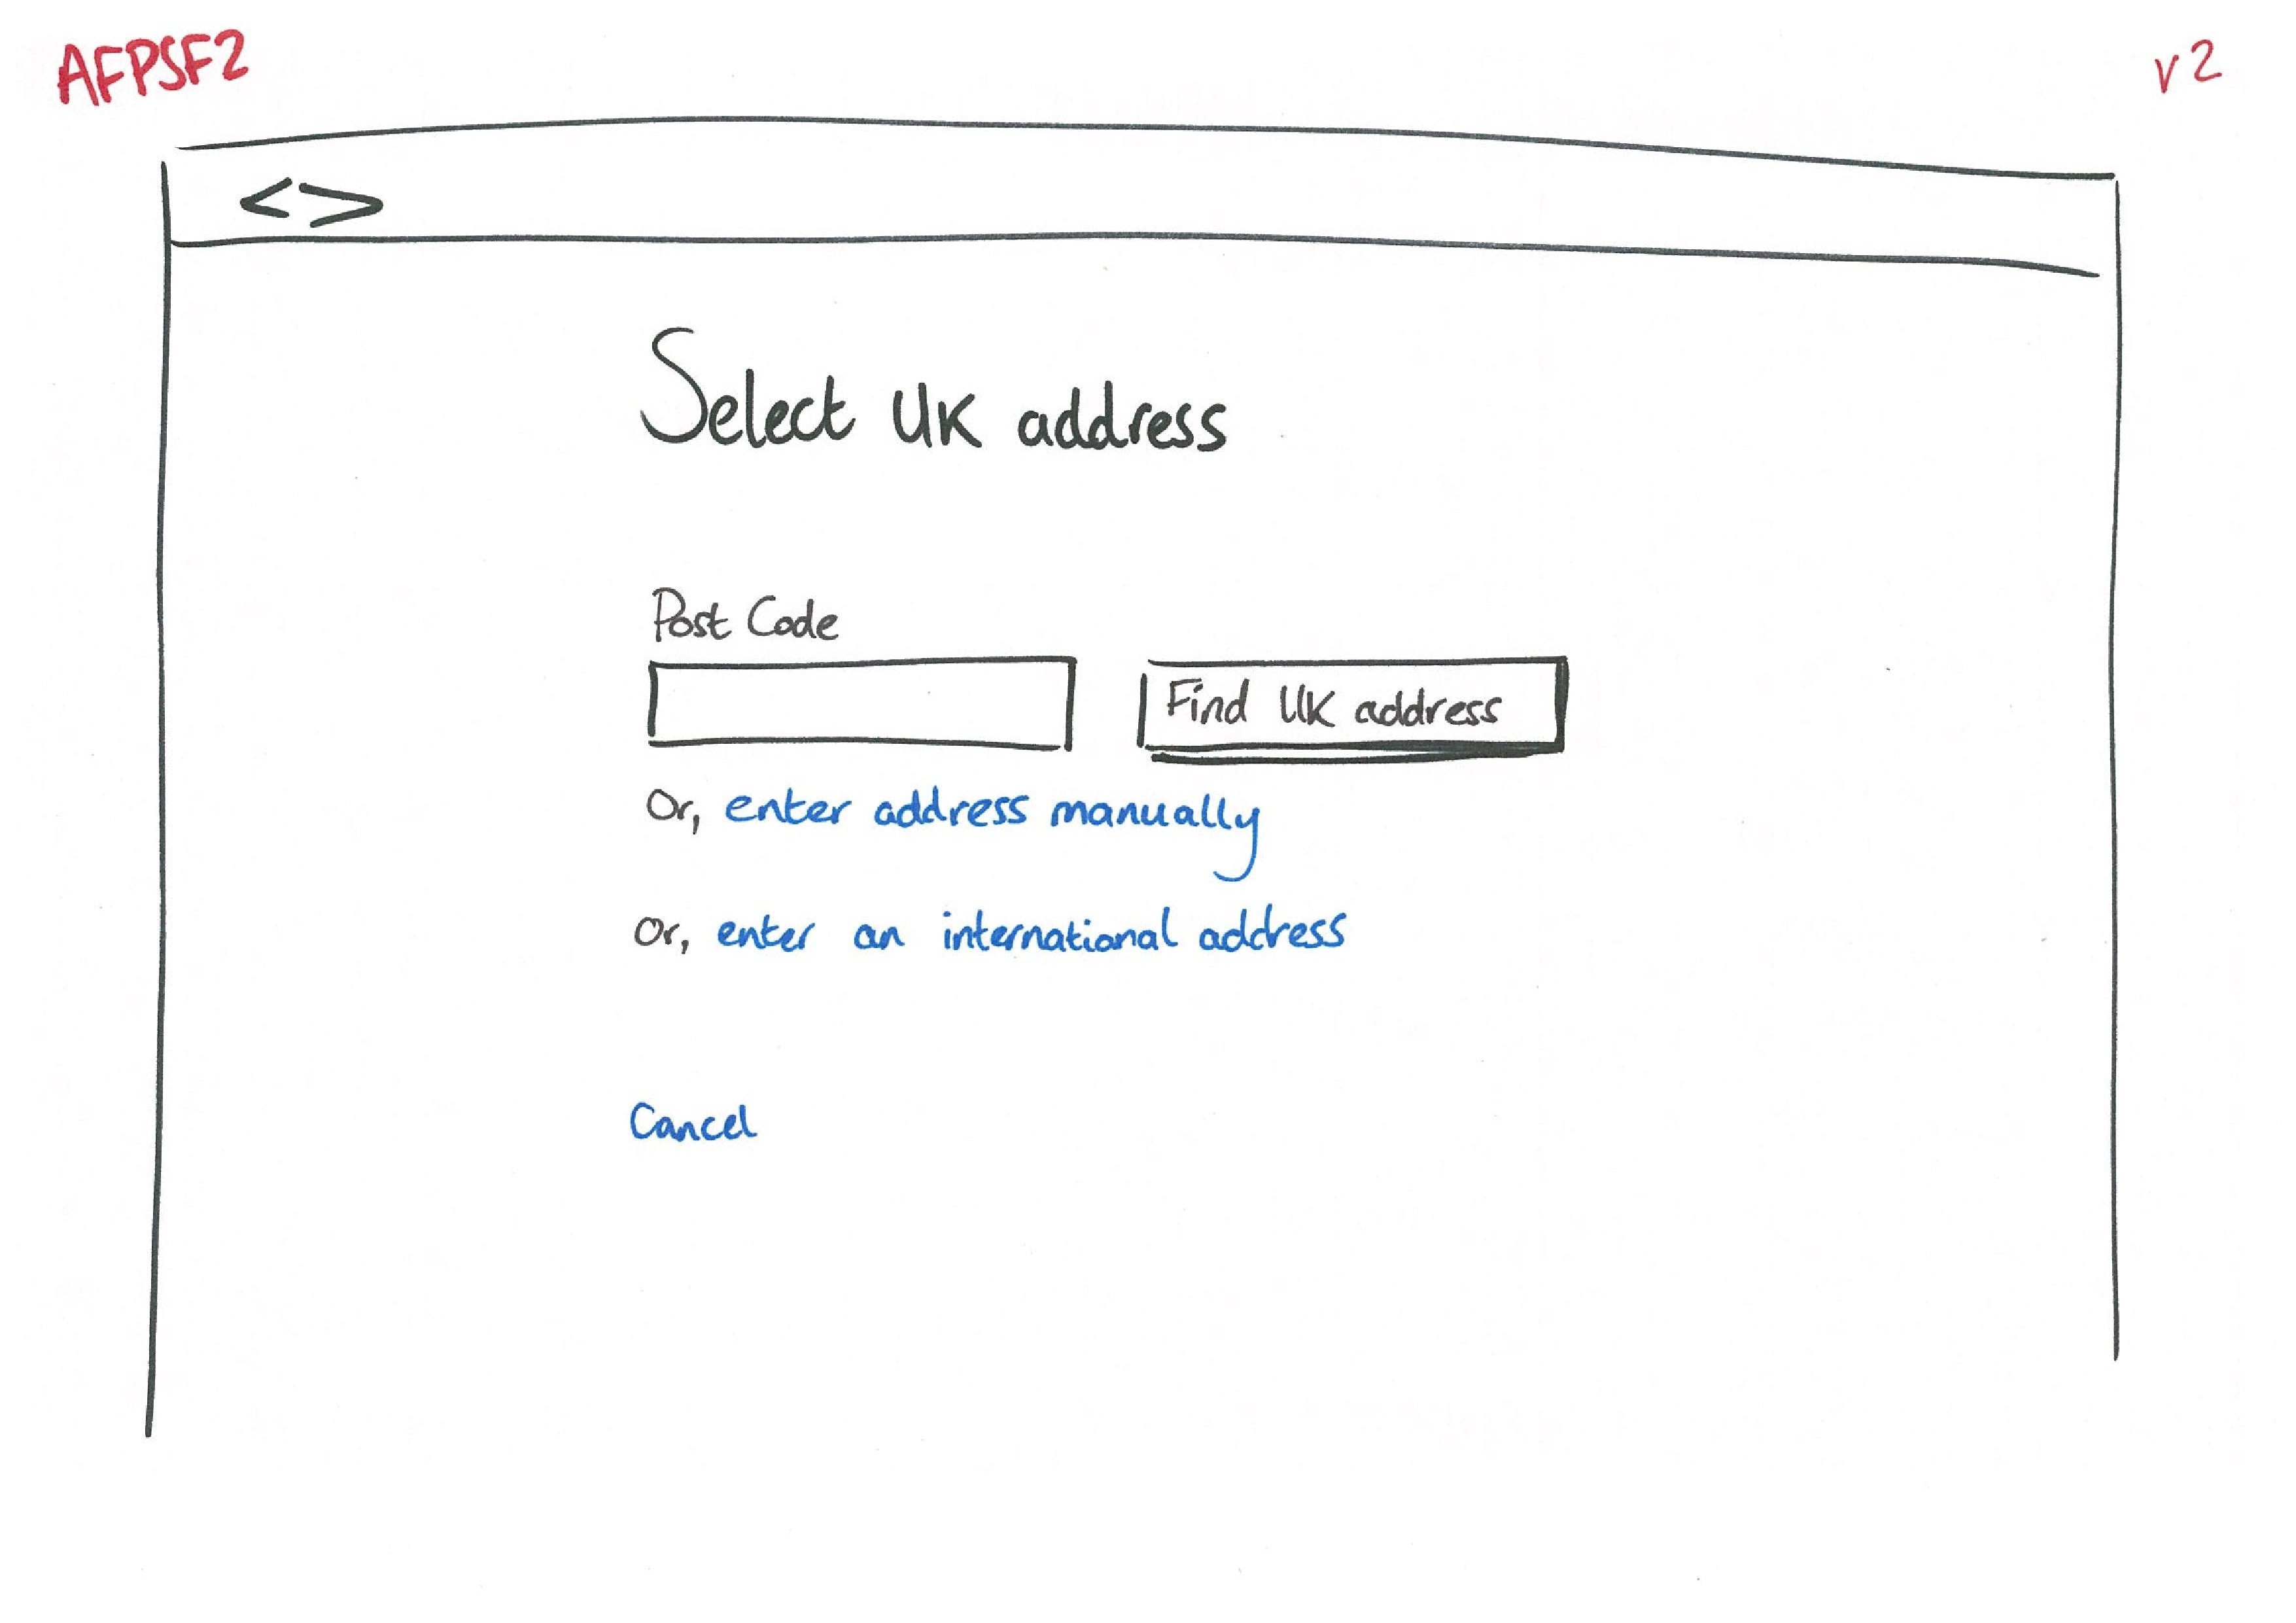 AFPSF2
v2
< >
Select UK address
Post Code
Find UK address
Or, enter address manually
Or, enter an international address
Cancel